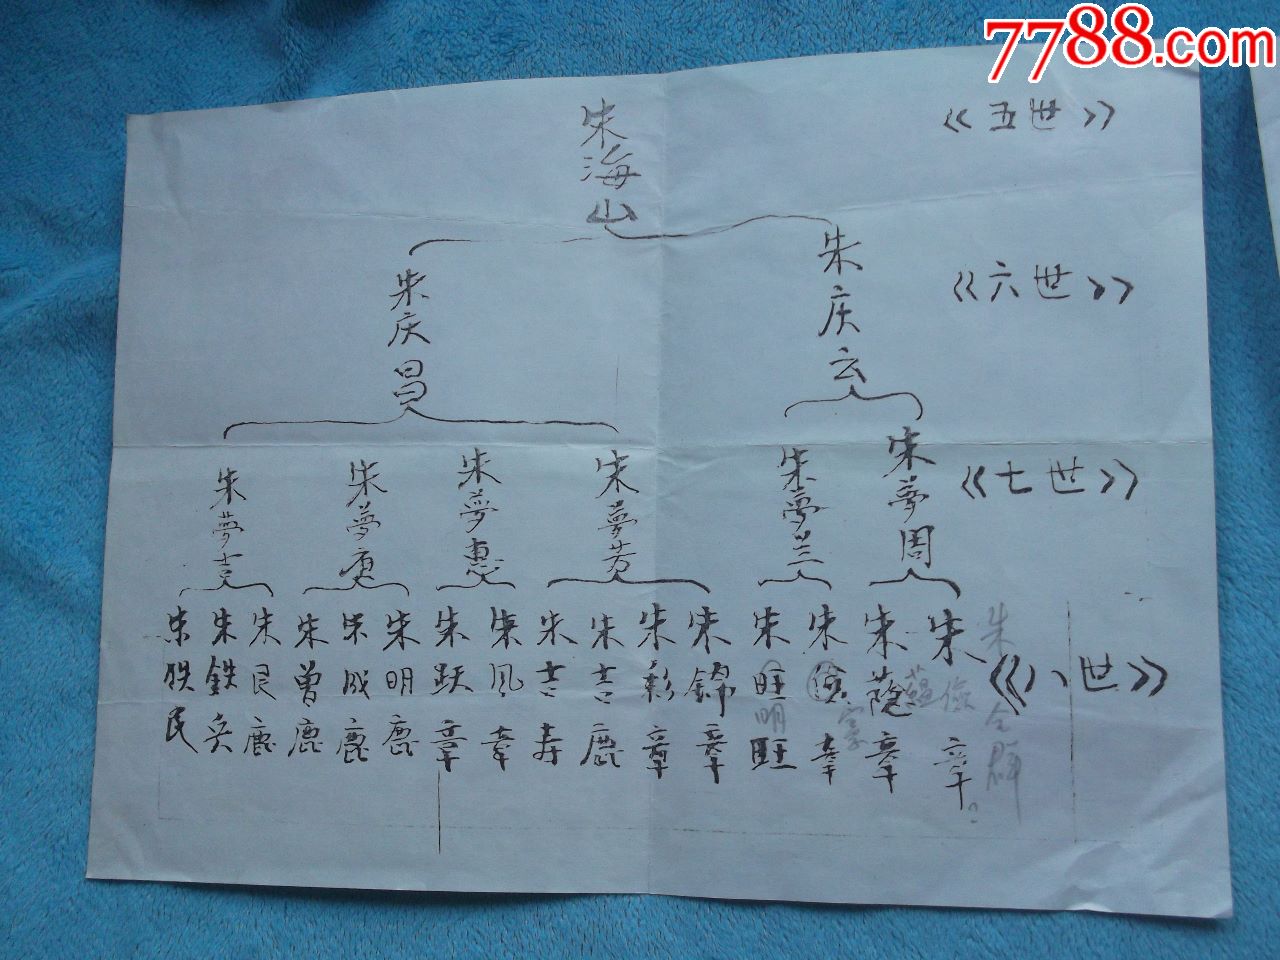 7788.com
朱海山
《五世》
朱庆昌
朱庆云
《六世》
朱夢吉
朱夢庚
朱夢惠
朱夢芳
朱夢兰
朱夢周
《七世》
朱铁民
朱鉄兵
朱艮鹿
朱曽鹿
朱成鹿
朱明鹿
朱跃章
朱风章
朱吉寿
朱吉鹿
朱彩章
朱錦章
朱旺明旺
朱俭章
朱蔭章
朱俭章
《八世》